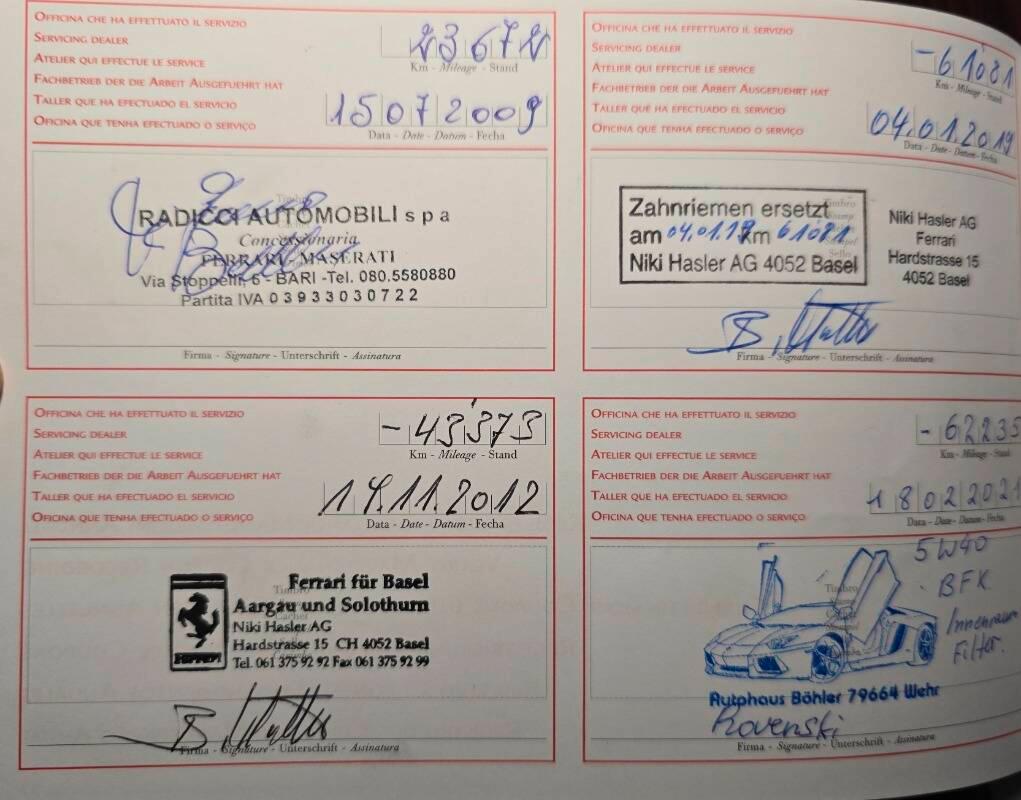 OFFICINA CHE HA EFFETTUATO IL SERVIZIO
SERVICING DEALER
ATELIER QUI EFFECTUE LE SERVICE
FACHBETRIEB DER DIE ARBEIT AUSGEFUEHRT HAT
TALLER QUE HA EFECTUADO EL SERVICIO
OFICINA QUE TENHA EFECTUADO O SERVIÇO
23672
Km - Mileage - Stand
15072009
Data - Date - Datum - Fecha
RADICCI AUTOMOBILI s p a
Concessionaria
FERRARI - MASERATI
Via Stoppelli, 6 - BARI -Tel. 080.5580880
Partita IVA 03933030722
Firma - Signature - Unterschrift - Assinatura
OFFICINA CHE HA EFFETTUATO IL SERVIZIO
SERVICING DEALER
ATELIER QUI EFFECTUE LE SERVICE
FACHBETRIEB DER DIE ARBEIT AUSGEFUEHRT HAT
TALLER QUE HA EFECTUADO EL SERVICIO
OFICINA QUE TENHA EFECTUADO O SERVIÇO
-61'081
Km - Mileage - Stand
04.01.2019
Data - Date - Datum - Fecha
Zahnriemen ersetzt
am 04.01.19 km 61081
Niki Hasler AG 4052 Basel
Niki Hasler AG
Ferrari
Hardstrasse 15
4052 Basel
Firma - Signature - Unterschrift - Assinatura
OFFICINA CHE HA EFFETTUATO IL SERVIZIO
SERVICING DEALER
ATELIER QUI EFFECTUE LE SERVICE
FACHBETRIEB DER DIE ARBEIT AUSGEFUEHRT HAT
TALLER QUE HA EFECTUADO EL SERVICIO
OFICINA QUE TENHA EFECTUADO O SERVIÇO
-43'373
Km - Mileage - Stand
14.11.2012
Data - Date - Datum - Fecha
Ferrari für Basel
Aargau und Solothurn
Niki Hasler AG
Hardstrasse 15 CH 4052 Basel
Tel. 061 375 92 92 Fax 061 375 92 99
Ferrari
Firma - Signature - Unterschrift - Assinatura
OFFICINA CHE HA EFFETTUATO IL SERVIZIO
SERVICING DEALER
ATELIER QUI EFFECTUE LE SERVICE
FACHBETRIEB DER DIE ARBEIT AUSGEFUEHRT HAT
TALLER QUE HA EFECTUADO EL SERVICIO
OFICINA QUE TENHA EFECTUADO O SERVIÇO
-62235
Km - Mileage - Stand
18022021
Data - Date - Datum - Fecha
5W40
BFK
Innenraum
Filter.
Autohaus Böhler 79664 Wehr
Rovenski
Firma - Signature - Unterschrift - Assinatura